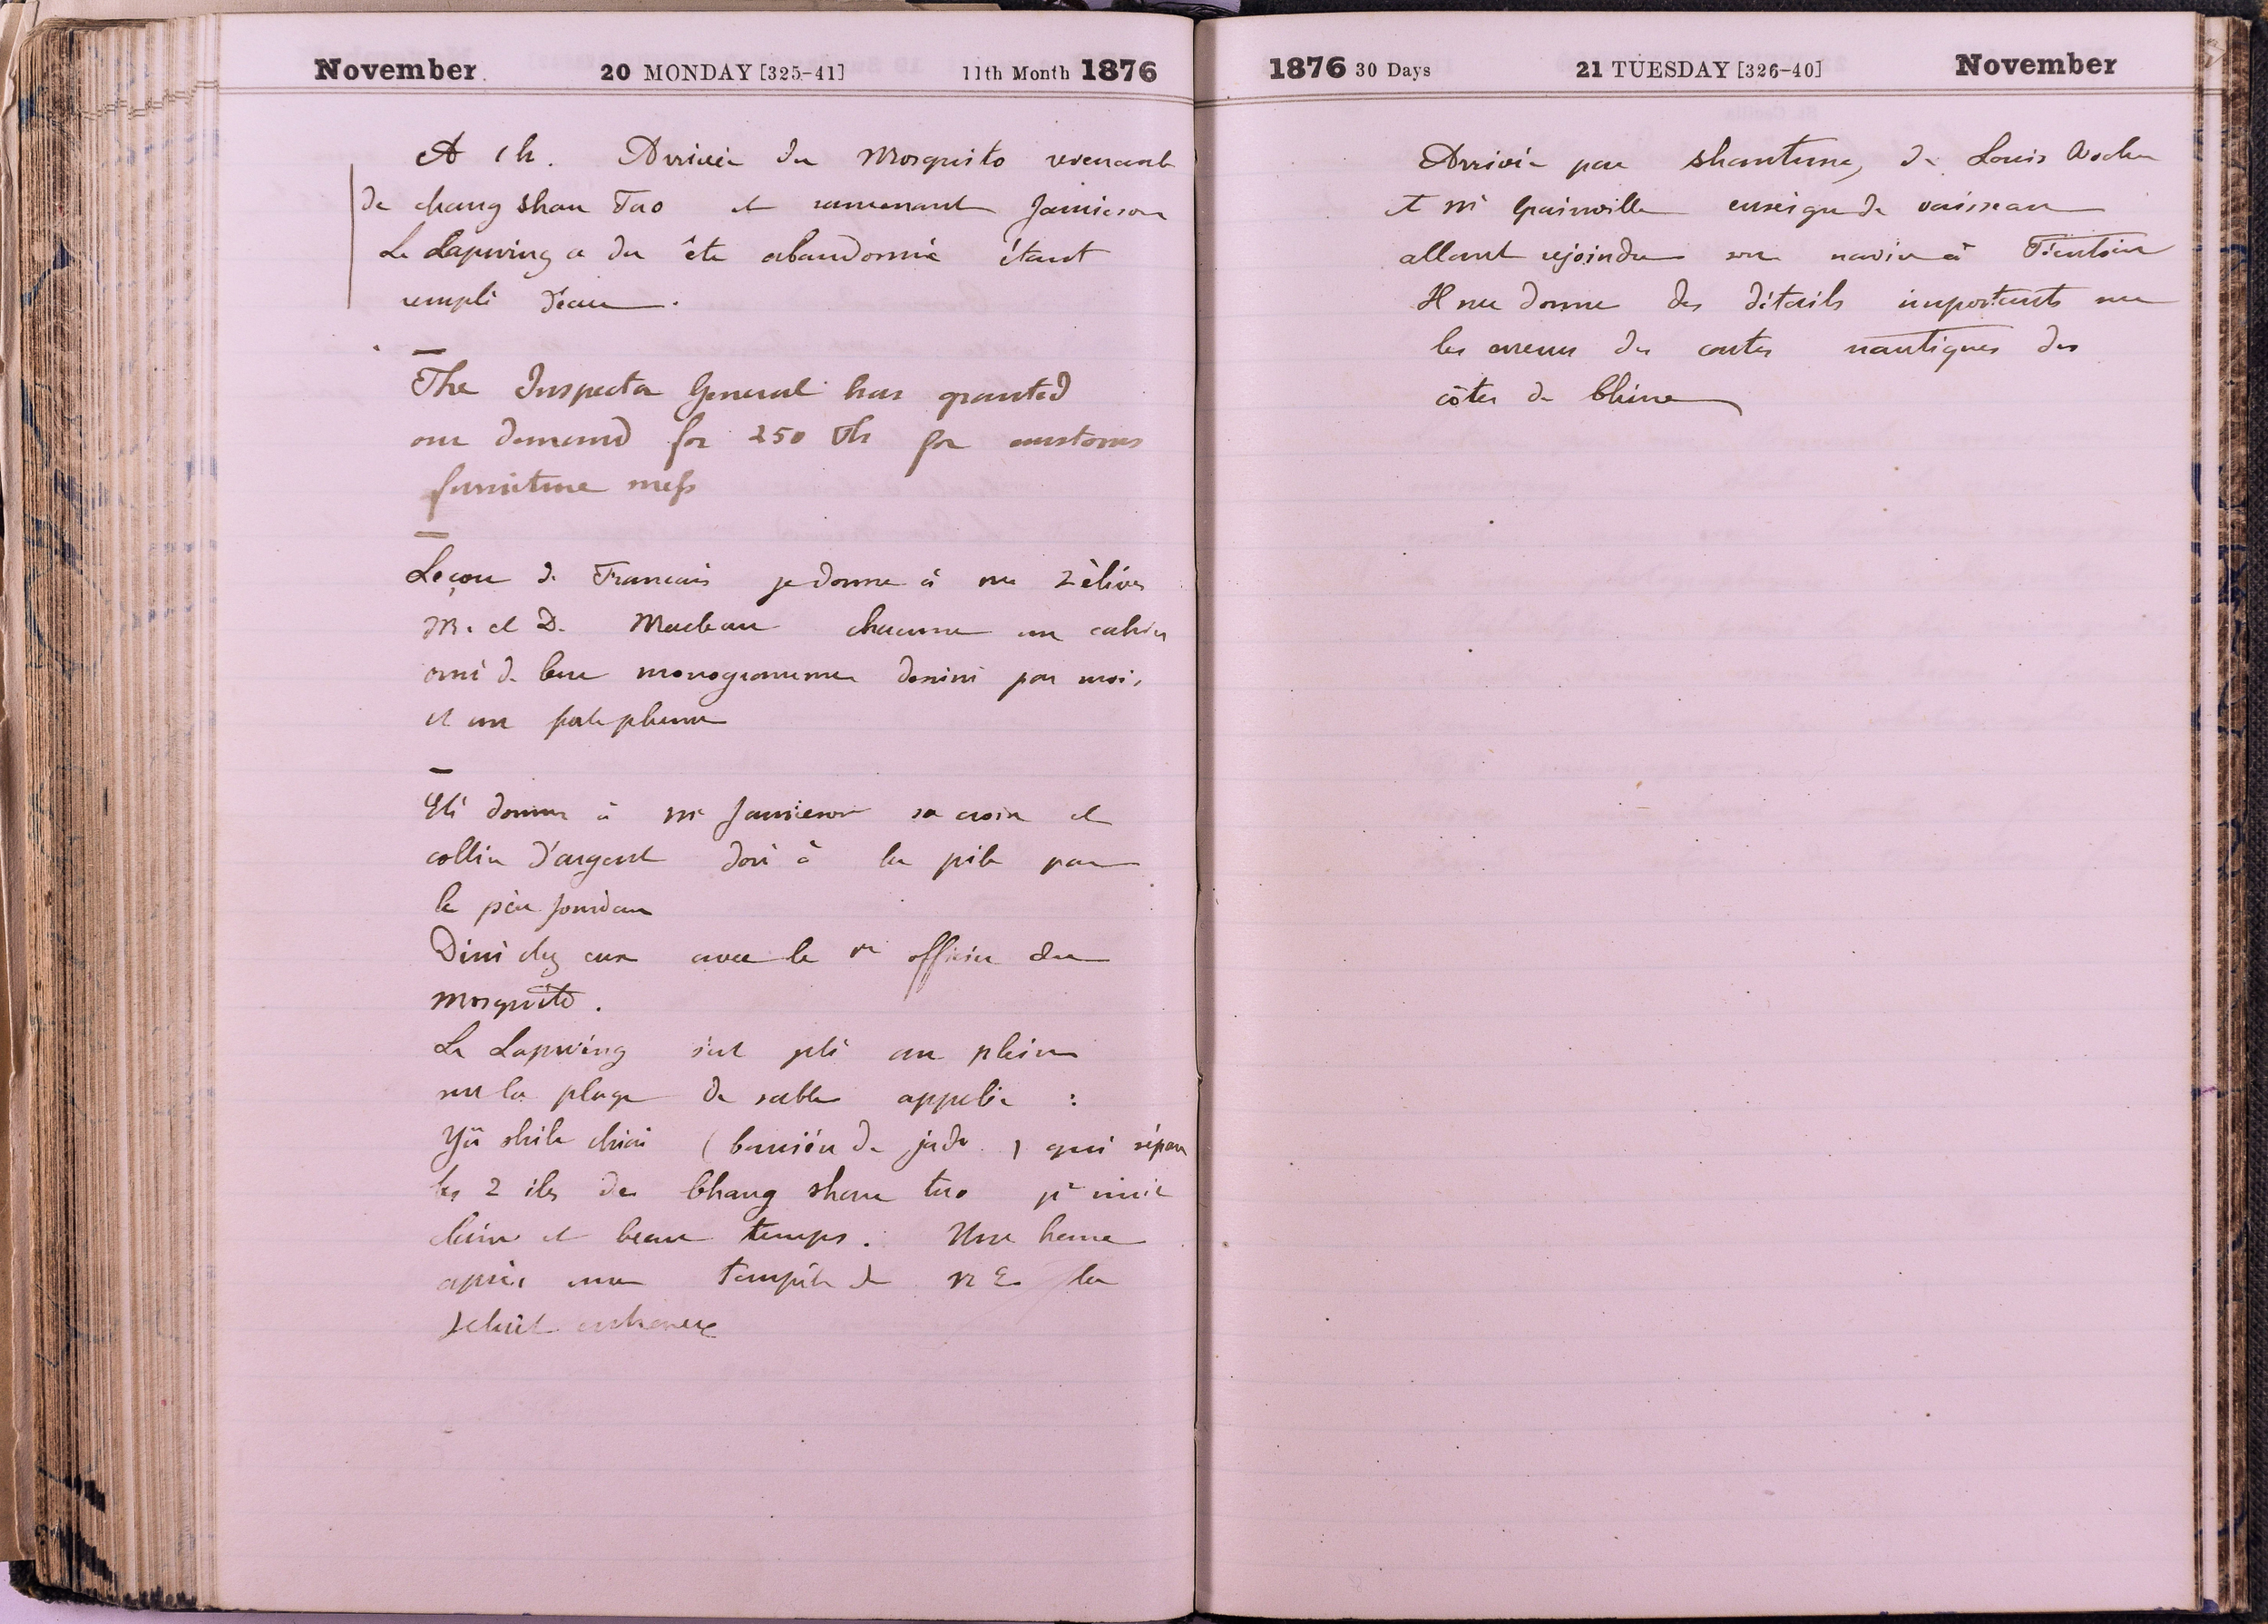 November 20 MONDAY [325-41] 11th Month 1876
A 1h. Arrivée du Mosquito revenant
de chang shan Tao et ramenant Jamieson
Le Lapwing a du être abandonné étant
rempli d'eau.
The Inspector General has granted
our demand for 250 Tls for customs
furniture mess
Leçon de Francais je donne à mes 2 élèves
M. et D. chacune un cahier
orné de leur monogramme dessiné par moi,
et un porte plume
Eté donner à Mr Jamieson sa croix et
collier d'argent doré à la pile par
le père Jourdan
Diné chez eux avec le 1er officier du
Mosquito.
Le Lapwing s'est jeté au plein
sur la plage de sable appelée :
Yü shih chiai (barrière de jade) qui sépare
les 2 iles de Chang shan tao par nuit
claire et beau temps. Une heure
après une tempête de NE la
1876 30 Days 21 TUESDAY [326-40] November
Arrivée par Shantung, de Louis Rocher
et Mr Gainville enseigne de vaisseau
allant rejoindre son navire à Tientsin
Il me donne des détails importants sur
les erreurs des cartes nautiques des
côtes de Chine